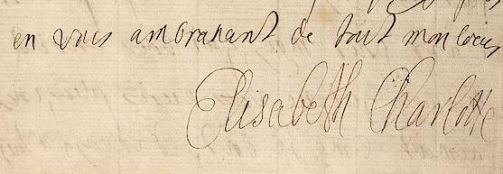 en vous ambrasant de tout mon coeur
Elisabeth Charlotte